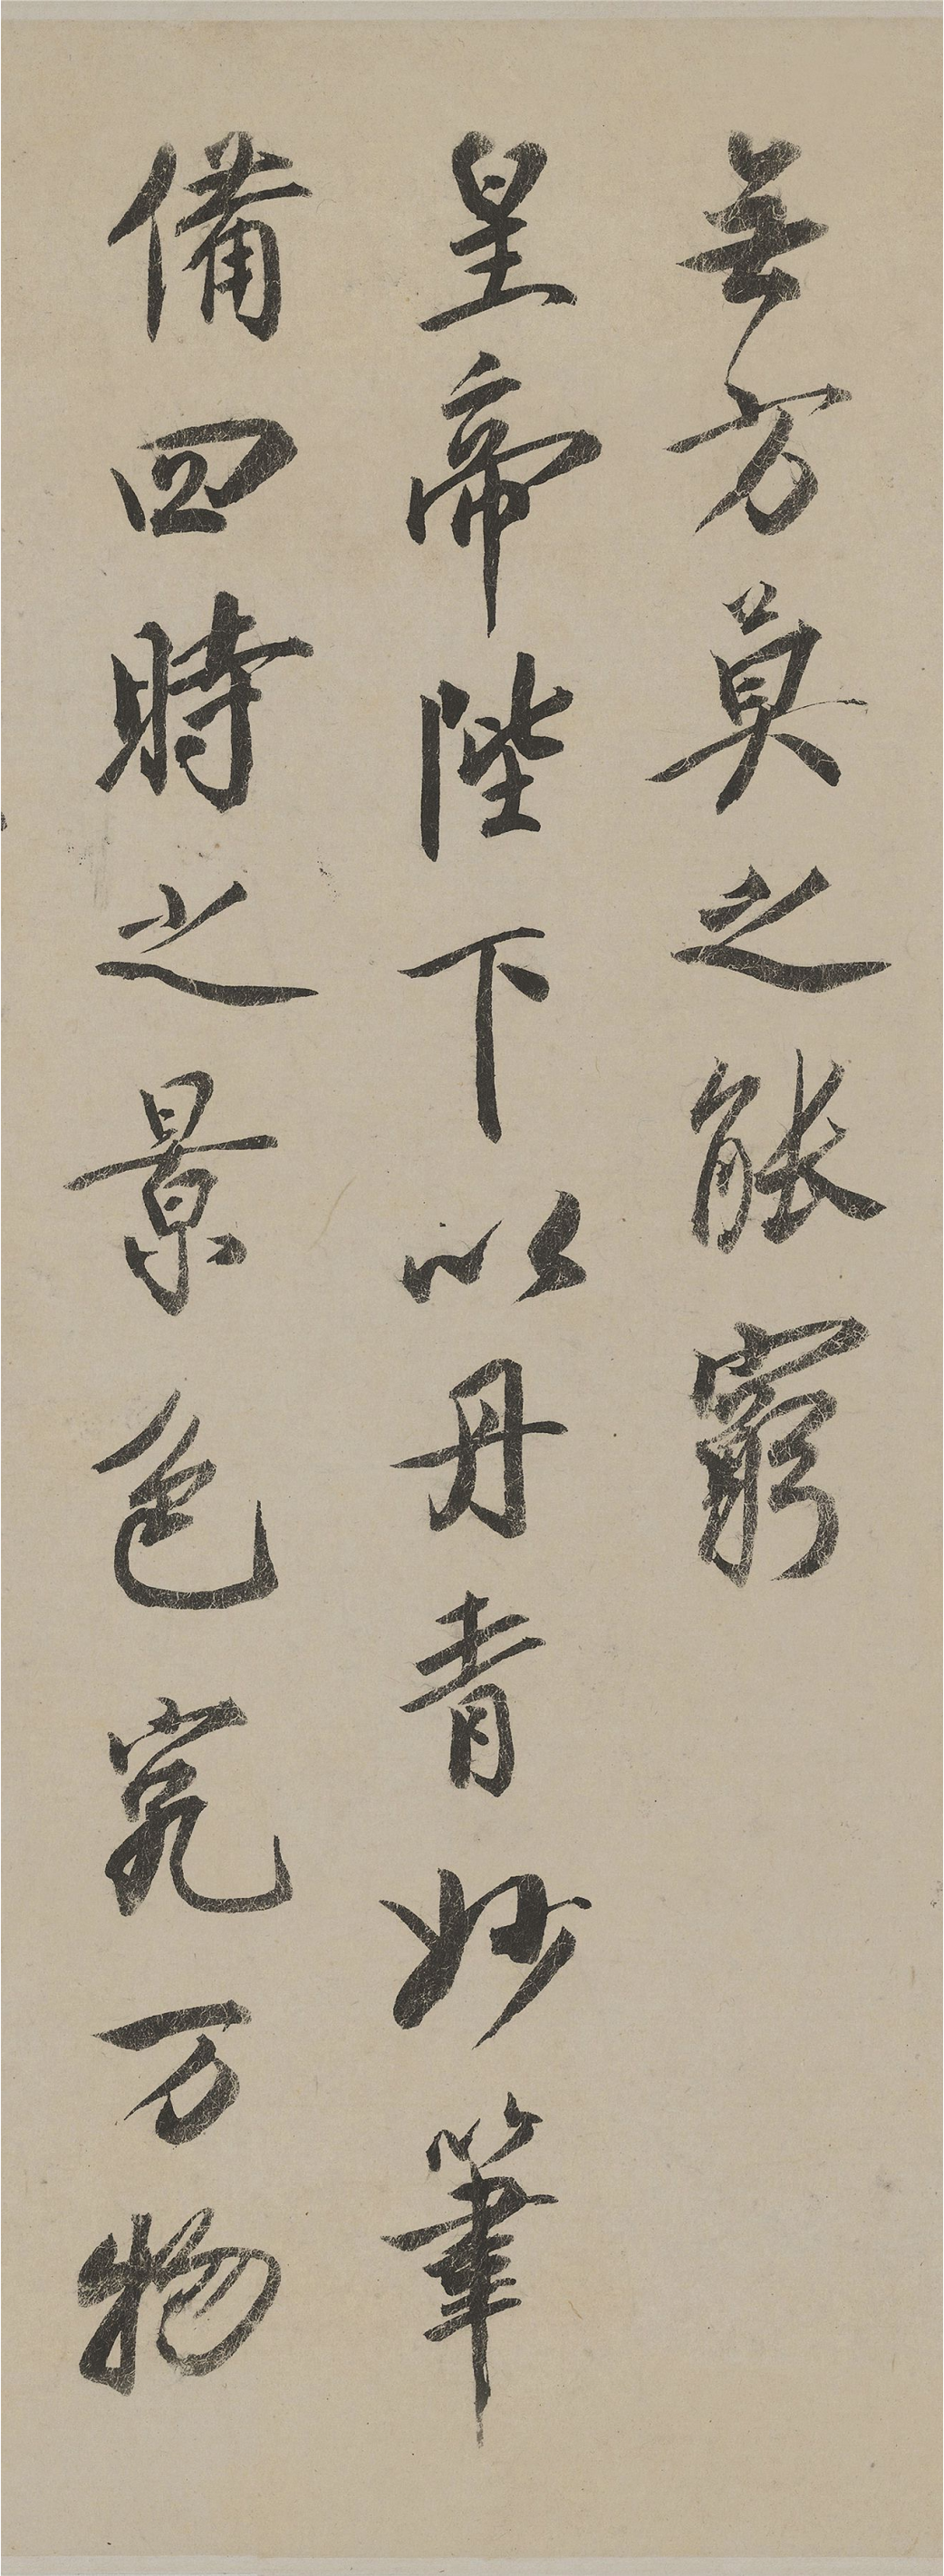 無方莫之能窮
皇帝陛下以丹青妙筆
備四時之景色究万物